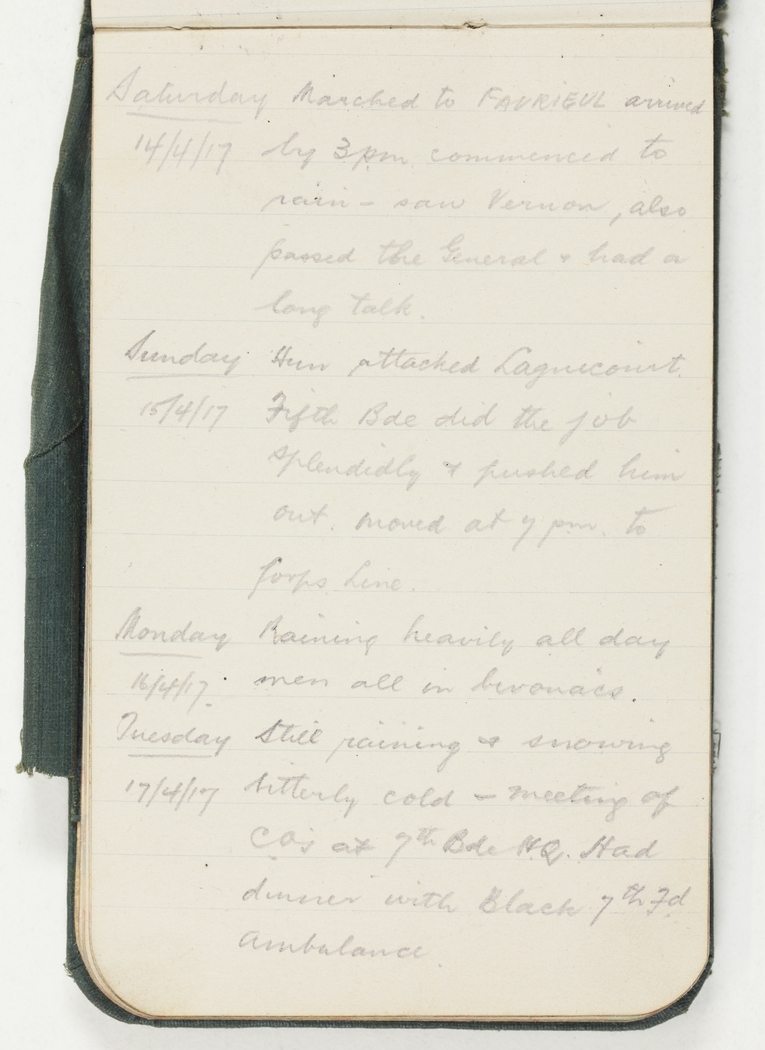 Saturday Marched to FAVRIEUL arrived
14/4/17 by 3pm commenced to
rain - saw Vernon, also
passed the General & had a
long talk.
Sunday Hun attacked Lagnicourt.
15/4/17 Fifth Bde did the job
splendidly & pushed him
out. moved at 7 pm. to
Corps Line.
Monday Raining heavily all day
16/4/17. men all in bivouacs.
Tuesday Still raining & snowing
17/4/17 bitterly cold - meeting of
CO's at 7th Bde HQ. Had
dinner with Black 7th Fd
Ambulance.